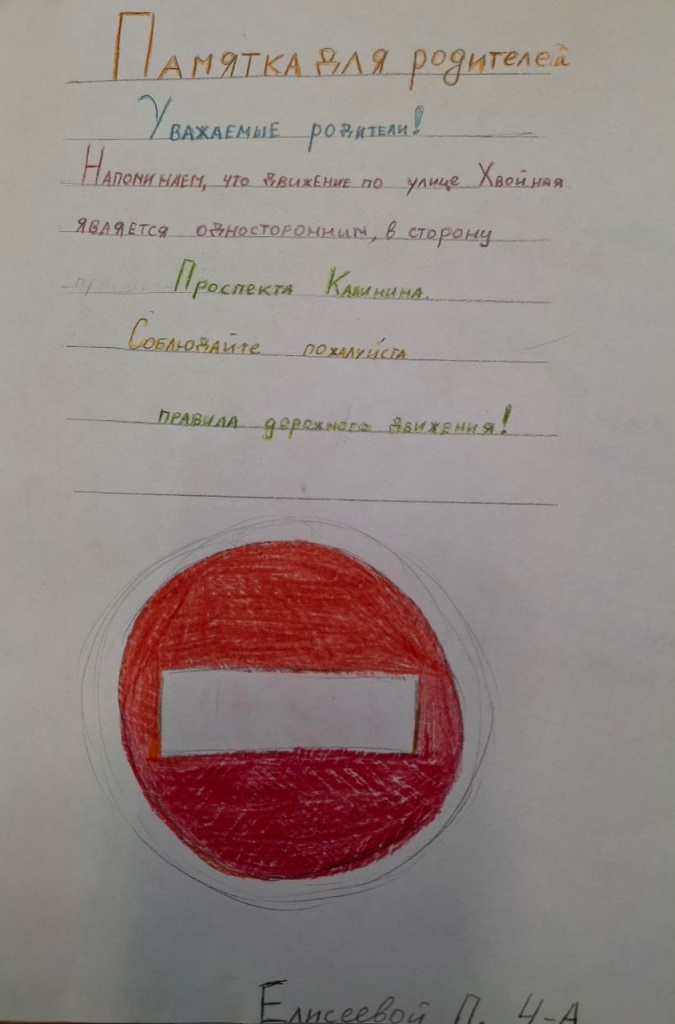 Памятка для родителей
Уважаемые родители!
Напоминаем, что движение по улице Хвойная
является односторонним, в сторону
Проспекта Калинина.
Соблюдайте пожалуйста
правила дорожного движения!
Елисеевой П. 4-А